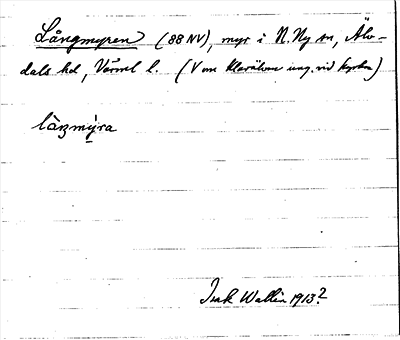 Långmyren (88 NV), myr i N. Ny sn, Älv-
dals hd, Värml l. (V om Klarälven ung. vid kyrkan)
làŋmy̌ra
Isak Wallin 1913?